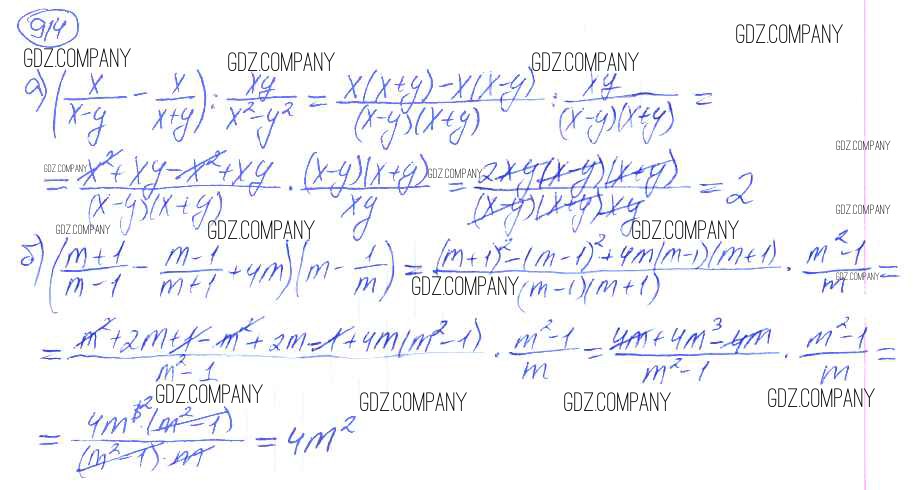 914
GDZ.COMPANY GDZ.COMPANY GDZ.COMPANY GDZ.COMPANY
а) (x/(x-y) - x/(x+y)) : xy/(x²-y²) = (x(x+y)-x(x-y))/((x-y)(x+y)) : xy/((x-y)(x+y)) =
GDZ.COMPANY
GDZ.COMPANY GDZ.COMPANY
= (x²+xy-x²+xy)/((x-y)(x+y)) · ((x-y)(x+y))/xy = (2xy(x-y)(x+y))/((x-y)(x+y)xy) = 2
GDZ.COMPANY
GDZ.COMPANY GDZ.COMPANY GDZ.COMPANY
б) ((m+1)/(m-1) - (m-1)/(m+1) + 4m)(m - 1/m) = ((m+1)²-(m-1)²+4m(m-1)(m+1))/((m-1)(m+1)) · (m²-1)/m =
GDZ.COMPANY GDZ.COMPANY
= (m²+2m+1-m²+2m-1+4m(m²-1))/(m²-1) · (m²-1)/m = (4m+4m³-4m)/(m²-1) · (m²-1)/m =
GDZ.COMPANY GDZ.COMPANY GDZ.COMPANY GDZ.COMPANY
= (4m³ ²·(m²-1))/((m²-1)·m) = 4m²